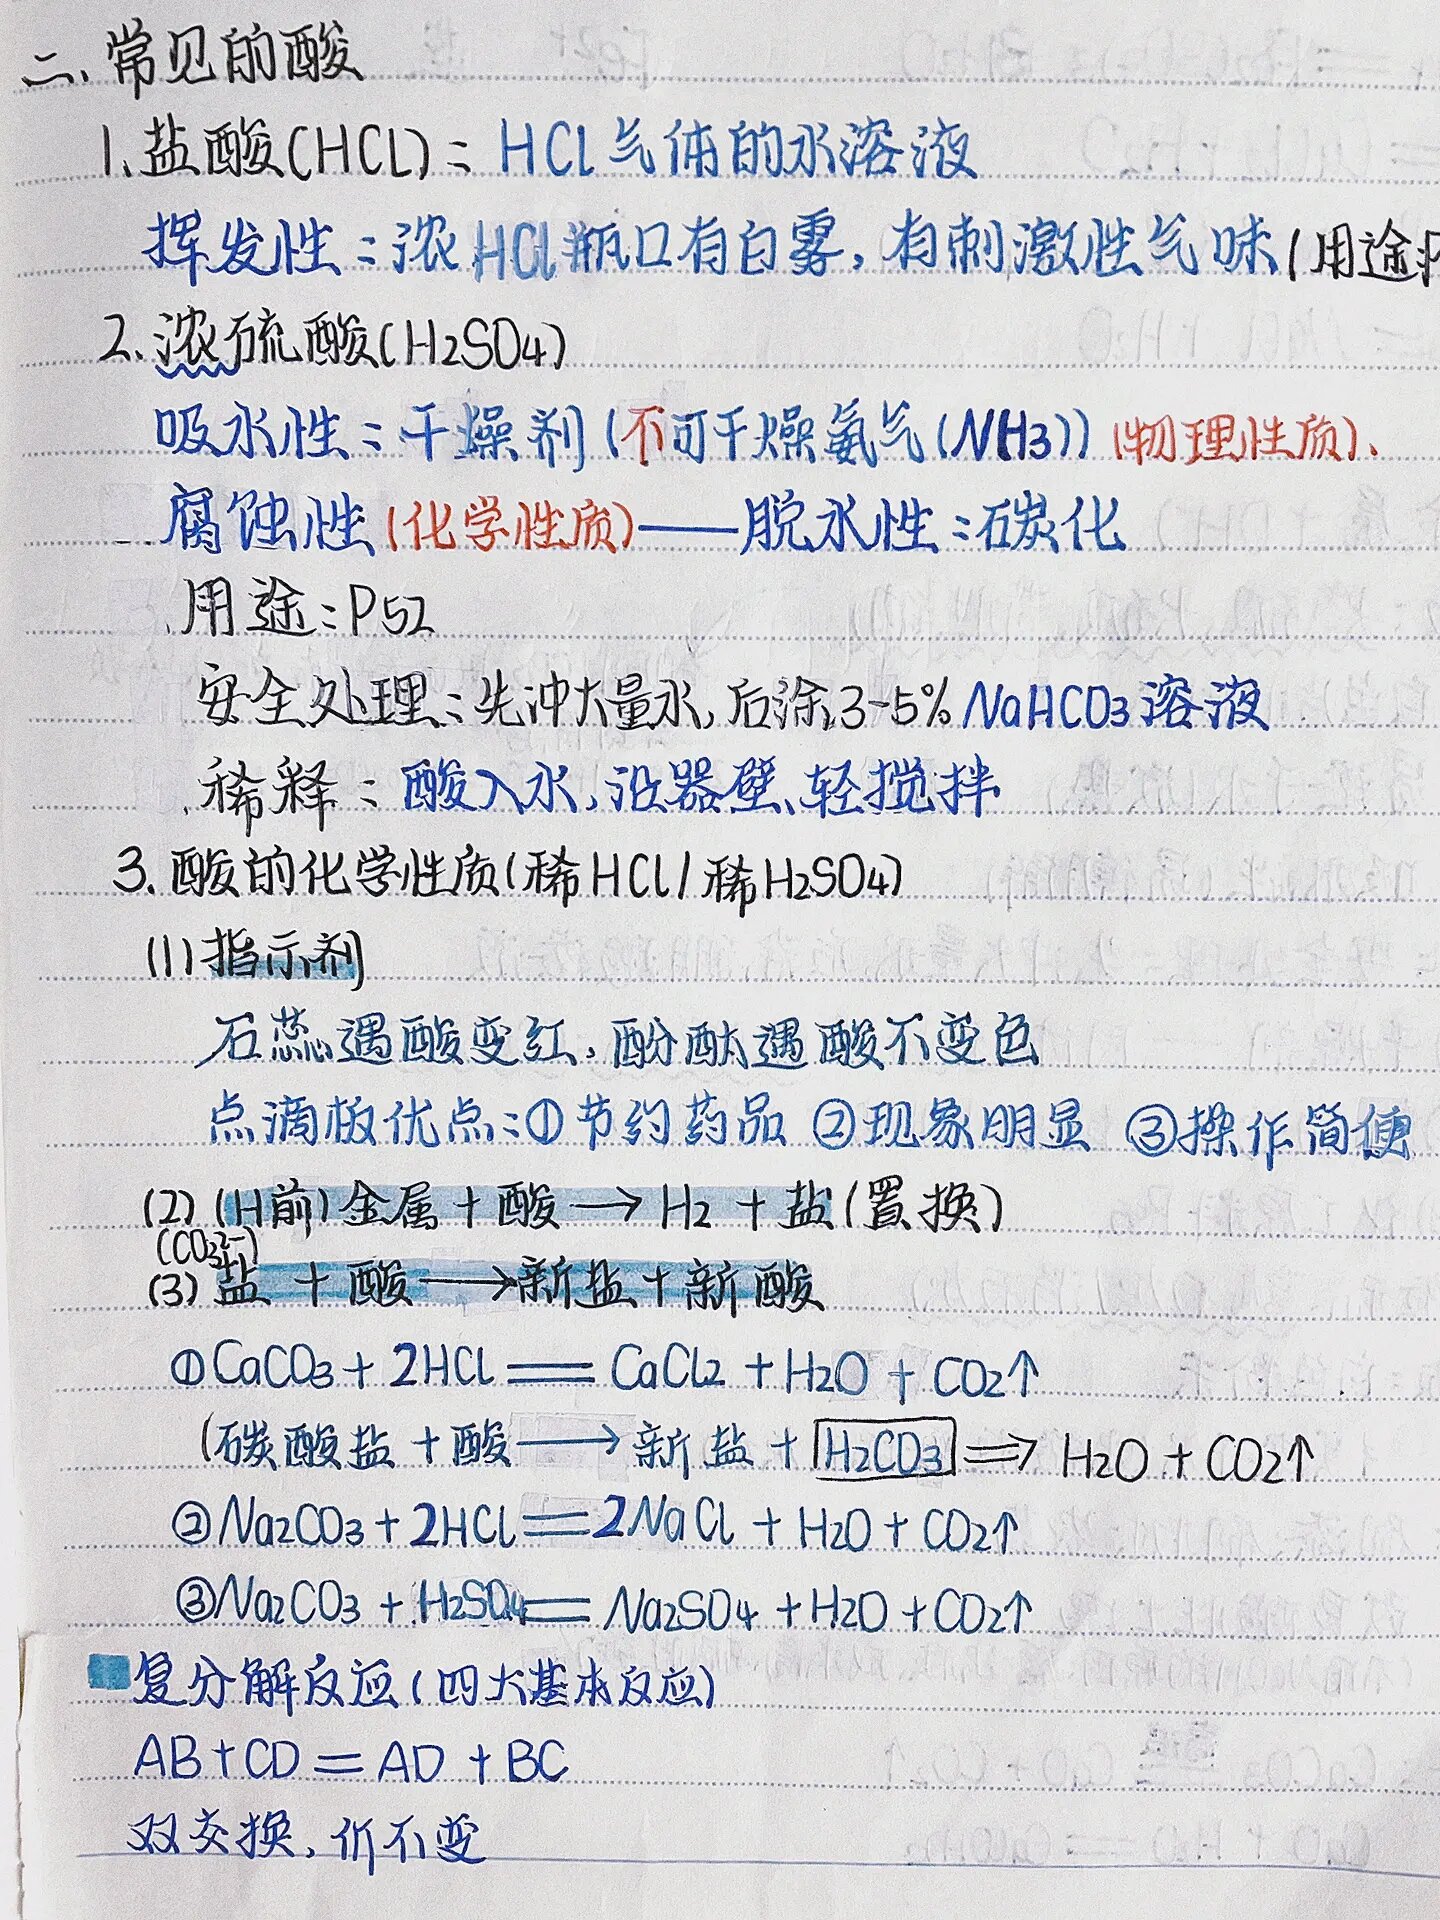 二、常见的酸
1.盐酸(HCl):HCl气体的水溶液
挥发性:浓HCl瓶口有白雾,有刺激性气味(用途
2.浓硫酸(H₂SO₄)
吸水性:干燥剂(不可干燥氨气(NH₃))(物理性质).
腐蚀性(化学性质)——脱水性:碳化
用途:P52
安全处理:先冲大量水,后涂3-5%NaHCO₃溶液
稀释:酸入水,沿器壁、轻搅拌
3.酸的化学性质(稀HCl/稀H₂SO₄)
(1)指示剂
石蕊遇酸变红,酚酞遇酸不变色
点滴板优点:①节约药品 ②现象明显 ③操作简便
(2)(H前)金属+酸→H₂+盐(置换)
(CO₃²⁻)
(3)盐+酸→新盐+新酸
①CaCO₃+2HCl=CaCl₂+H₂O+CO₂↑
(碳酸盐+酸→新盐+H₂CO₃⇒H₂O+CO₂↑
②Na₂CO₃+2HCl=2NaCl+H₂O+CO₂↑
③Na₂CO₃+H₂SO₄=Na₂SO₄+H₂O+CO₂↑
复分解反应(四大基本反应)
AB+CD=AD+BC
双交换,价不变